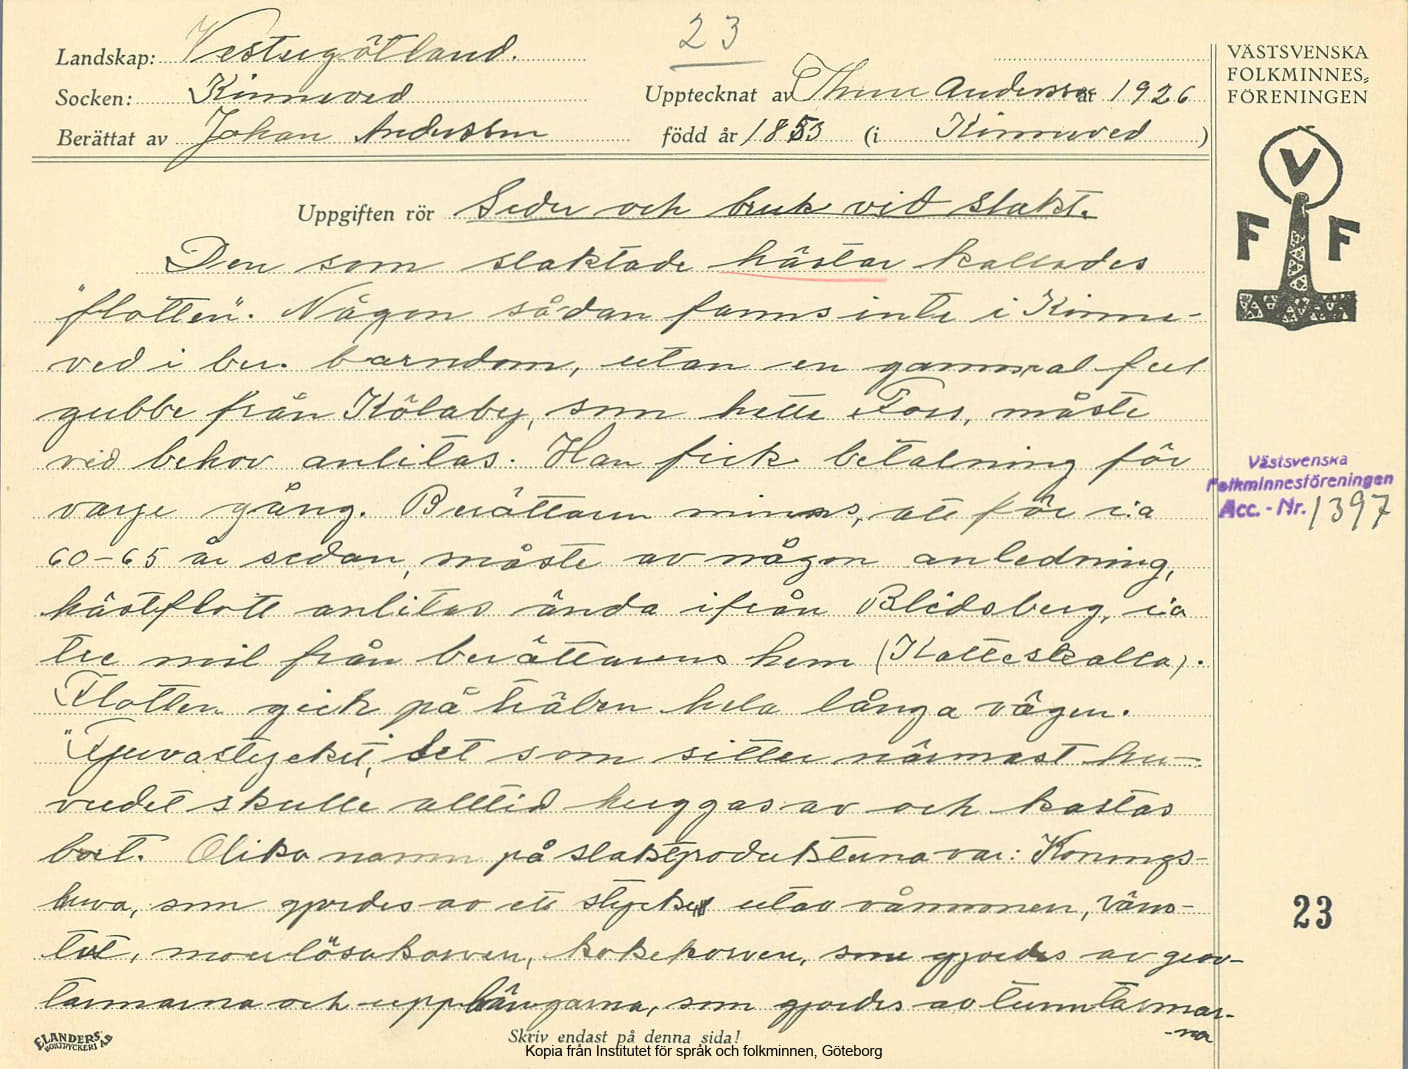 23
Landskap: Vestergötland.
Socken: Kinneved
Upptecknat av Thure Andersson år 1926
Berättat av Johan Andersson född år 1853 (i Kinneved)
VÄSTSVENSKA
FOLKMINNES=
FÖRENINGEN
V
F F
Uppgiften rör Seder och bruk vid slakt.
Den som slaktade hästar kallades
"flotten". Någon sådan fanns inte i Kinne-
ved i ber. barndom, utan en gammal ful
gubbe från Kölaby, som hette Fors, måste
vid behov anlitas. Han fick betalning för
varje gång. Berättaren minns, att för c:a
60-65 år sedan, måste av någon anledning,
hästflott anlitas ända ifrån Blidsberg, c:a
tre mil från berättarens hem (Katteskalla).
Flotten gick på träben hela långa vägen.
"Tjuvastycket", det som sitter närmast hu-
vudet skulle alltid huggas av och kastas
bort. Olika namn på slaktprodukterna var: Konungs-
huva, som gjordes av ett stycke utav våmmen, väns-
tret, morlösakorven, kokekorven, som gjordes av grov-
tarmarna och upphängarna, som gjordes av tunntarmar-
-na
Västsvenska
Folkminnesföreningen
Acc. - Nr. 1397
23
ELANDERS
BOKTRYCKERI AB
Skriv endast på denna sida!
Kopia från Institutet för språk och folkminnen, Göteborg